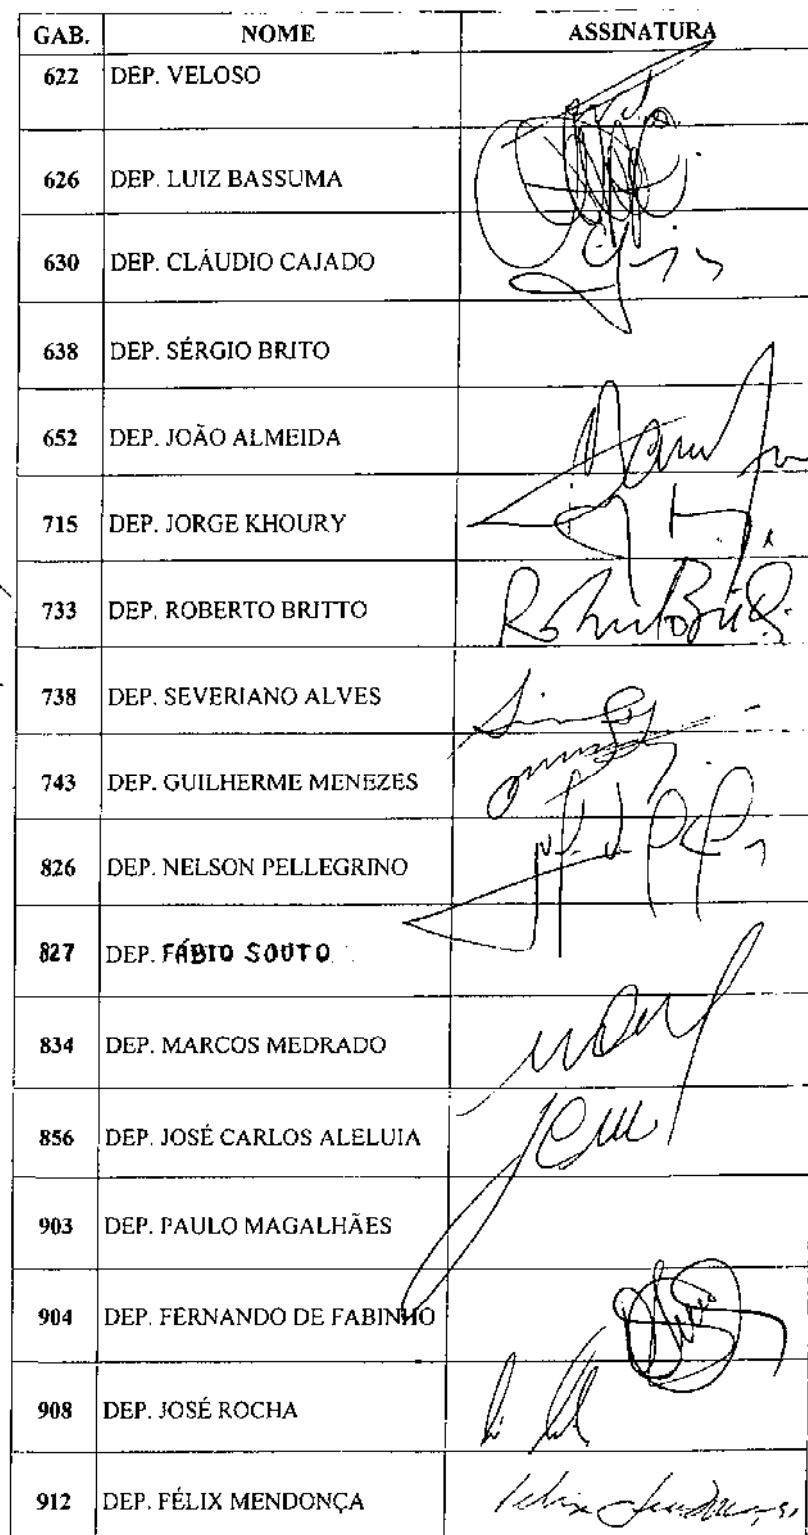 GAB. NOME ASSINATURA
622 DEP. VELOSO
626 DEP. LUIZ BASSUMA
630 DEP. CLÁUDIO CAJADO
638 DEP. SÉRGIO BRITO
652 DEP. JOÃO ALMEIDA
715 DEP. JORGE KHOURY
733 DEP. ROBERTO BRITTO Roberto Britto
738 DEP. SEVERIANO ALVES
743 DEP. GUILHERME MENEZES
826 DEP. NELSON PELLEGRINO
827 DEP. FÁBIO SOUTO
834 DEP. MARCOS MEDRADO
856 DEP. JOSÉ CARLOS ALELUIA
903 DEP. PAULO MAGALHÃES
904 DEP. FERNANDO DE FABINHO
908 DEP. JOSÉ ROCHA
912 DEP. FÉLIX MENDONÇA Felix Mendonça